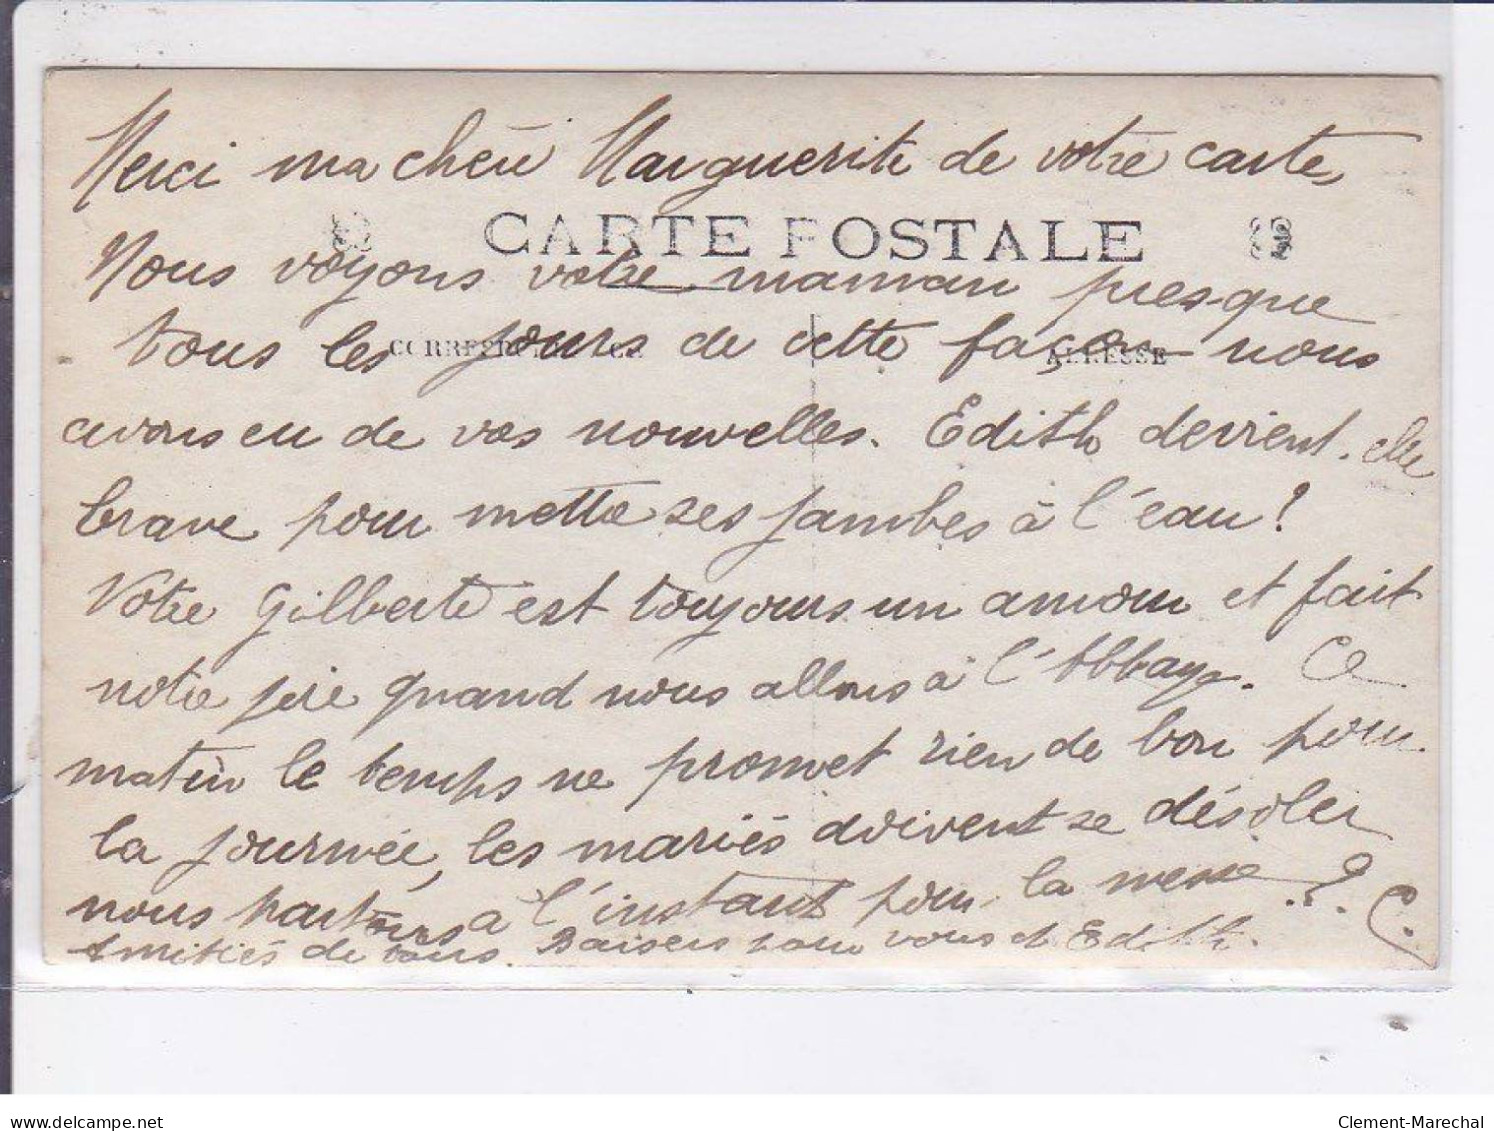 Merci ma chère Marguerite de votre carte,
CARTE POSTALE
Nous voyons votre maman presque
CORRESPONDANCE
ADRESSE
tous les jours de cette façon nous
avons eu de vos nouvelles. Edith devient-elle
brave pour mettre ses jambes à l'eau?
Votre Gilberte est toujours un amour et fait
notre joie quand nous allons à l'Abbaye. Ce
matin le temps ne promet rien de bon pour
la journée, les mariés doivent se désoler
nous partons à l'instant pour la messe.?. C.
Amitiés de tous. Baisers pour vous et Edith.
delcampe.net
Clement-Marechal